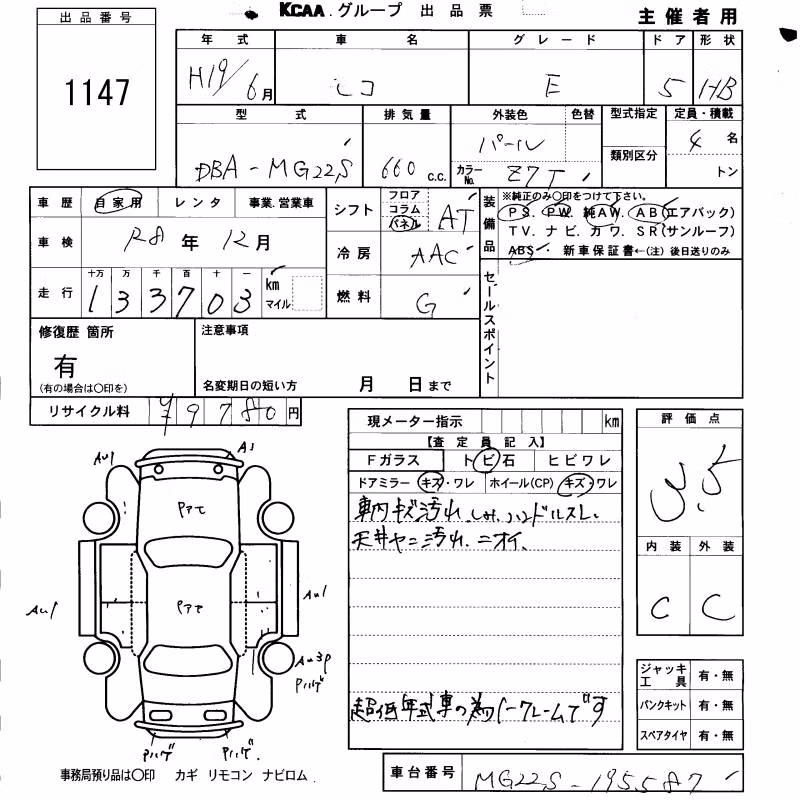 KCAA.グループ 出品票 主催者用
出品番号
1147
年式 車名 グレード ドア 形状
H19/6月 ピコ E 5 HB
型式 排気量 外装色 色替 型式指定 定員・積載
DBA-MG22S 660 c.c. パール 4名
カラーNo. Z7T 類別区分 トン
車歴 自家用 レンタ 事業.営業車
車検 R8年12月
走行 十万 万 千 百 十 一
133703 km マイル
シフト フロア コラム パネル AT
冷房 AAC
燃料 G
装備品 ※純正のみ〇印をつけて下さい。
PS. PW. 純AW. AB(エアバック)
TV. ナビ. カワ. SR(サンルーフ)
ABS. 新車保証書←(注) 後日送りのみ
セールスポイント
修復歴 箇所 注意事項
有
(有の場合は〇印を) 名変期日の短い方 月 日まで
リサイクル料 ¥9780円
現メーター指示 km
【査定員記入】
Fガラス トビ石 ヒビワレ
ドアミラー キズ・ワレ ホイール(CP) キズ・ワレ
車内キズ汚れ.しみ.ハンドルスレ.
天井ヤニ汚れ.ニオイ.
超低年式車の為ノークレームです
評価点
3.5
内装 外装
C C
AU1 A1
Pアセ
Pアセ
AU1 AU1
AU3P
Pハゲ
Pハゲ Pハゲ
ジャッキ工具 有・無
パンクキット 有・無
スペアタイヤ 有・無
事務局預り品は〇印 カギ リモコン ナビロム
車台番号 MG22S-195587